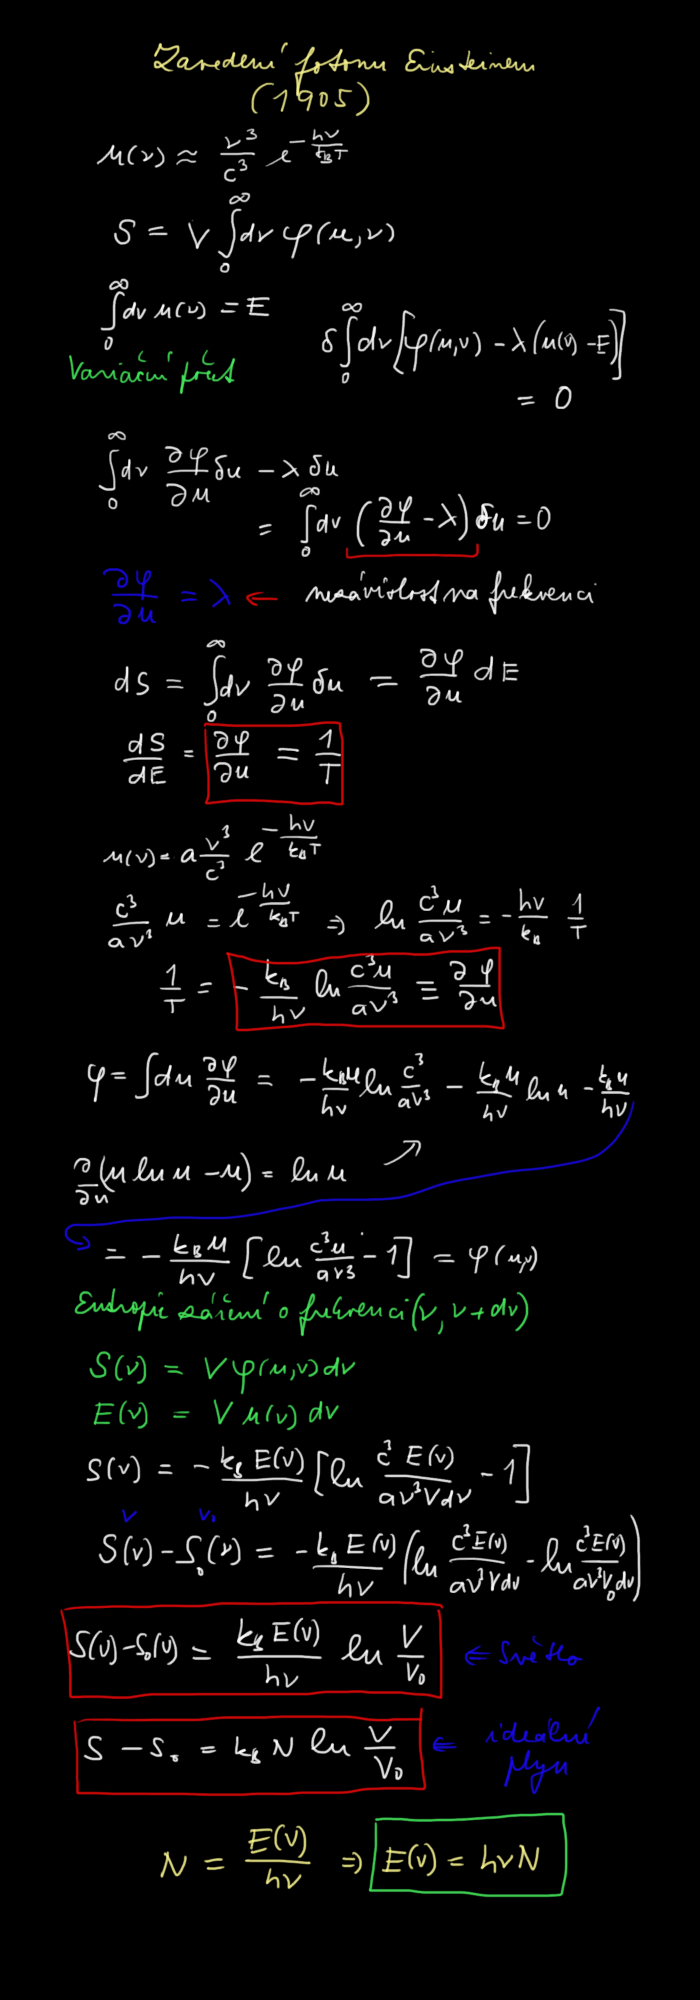 Zavedení fotonu Einsteinem
(1905)
u(ν) ≈ ν³/c³ e^(-hν/k_BT)
S = V ∫₀^∞ dν φ(u,ν)
∫₀^∞ dν u(ν) = E
δ∫₀^∞ dν [φ(u,ν) - λ(u(ν) - E)]
= 0
Variační počet
∫₀^∞ dν ∂φ/∂u δu - λ δu
= ∫₀^∞ dν (∂φ/∂u - λ) δu = 0
∂φ/∂u = λ ← nezávislost na frekvenci
dS = ∫₀^∞ dν ∂φ/∂u δu = ∂φ/∂u dE
dS/dE = ∂φ/∂u = 1/T
u(ν) = a ν³/c³ e^(-hν/k_BT)
c³/aν³ u = e^(-hν/k_BT) ⇒ ln c³u/aν³ = - hν/k_B 1/T
1/T = - k_B/hν ln c³u/aν³ ≡ ∂φ/∂u
φ = ∫du ∂φ/∂u = - k_Bu/hν ln c³/aν³ - k_Bu/hν ln u - k_Bu/hν
∂/∂u (u ln u - u) = ln u ↗
= - k_Bu/hν [ln c³u/aν³ - 1] = φ(u,ν)
Entropie záření o frekvenci (ν, ν + dν)
S(ν) = V φ(u,ν) dν
E(ν) = V u(ν) dν
S(ν) = - k_B E(ν)/hν [ln c³ E(ν)/aν³Vdν - 1]
V V₀
S(ν) - S₀(ν) = - k_B E(ν)/hν (ln c³E(ν)/aν³Vdν - ln c³E(ν)/aν³V₀dν)
S(ν) - S₀(ν) = k_B E(ν)/hν ln V/V₀ ⇐ Světlo
S - S₀ = k_B N ln V/V₀ ⇐ ideální
plyn
N = E(ν)/hν ⇒ E(ν) = hνN